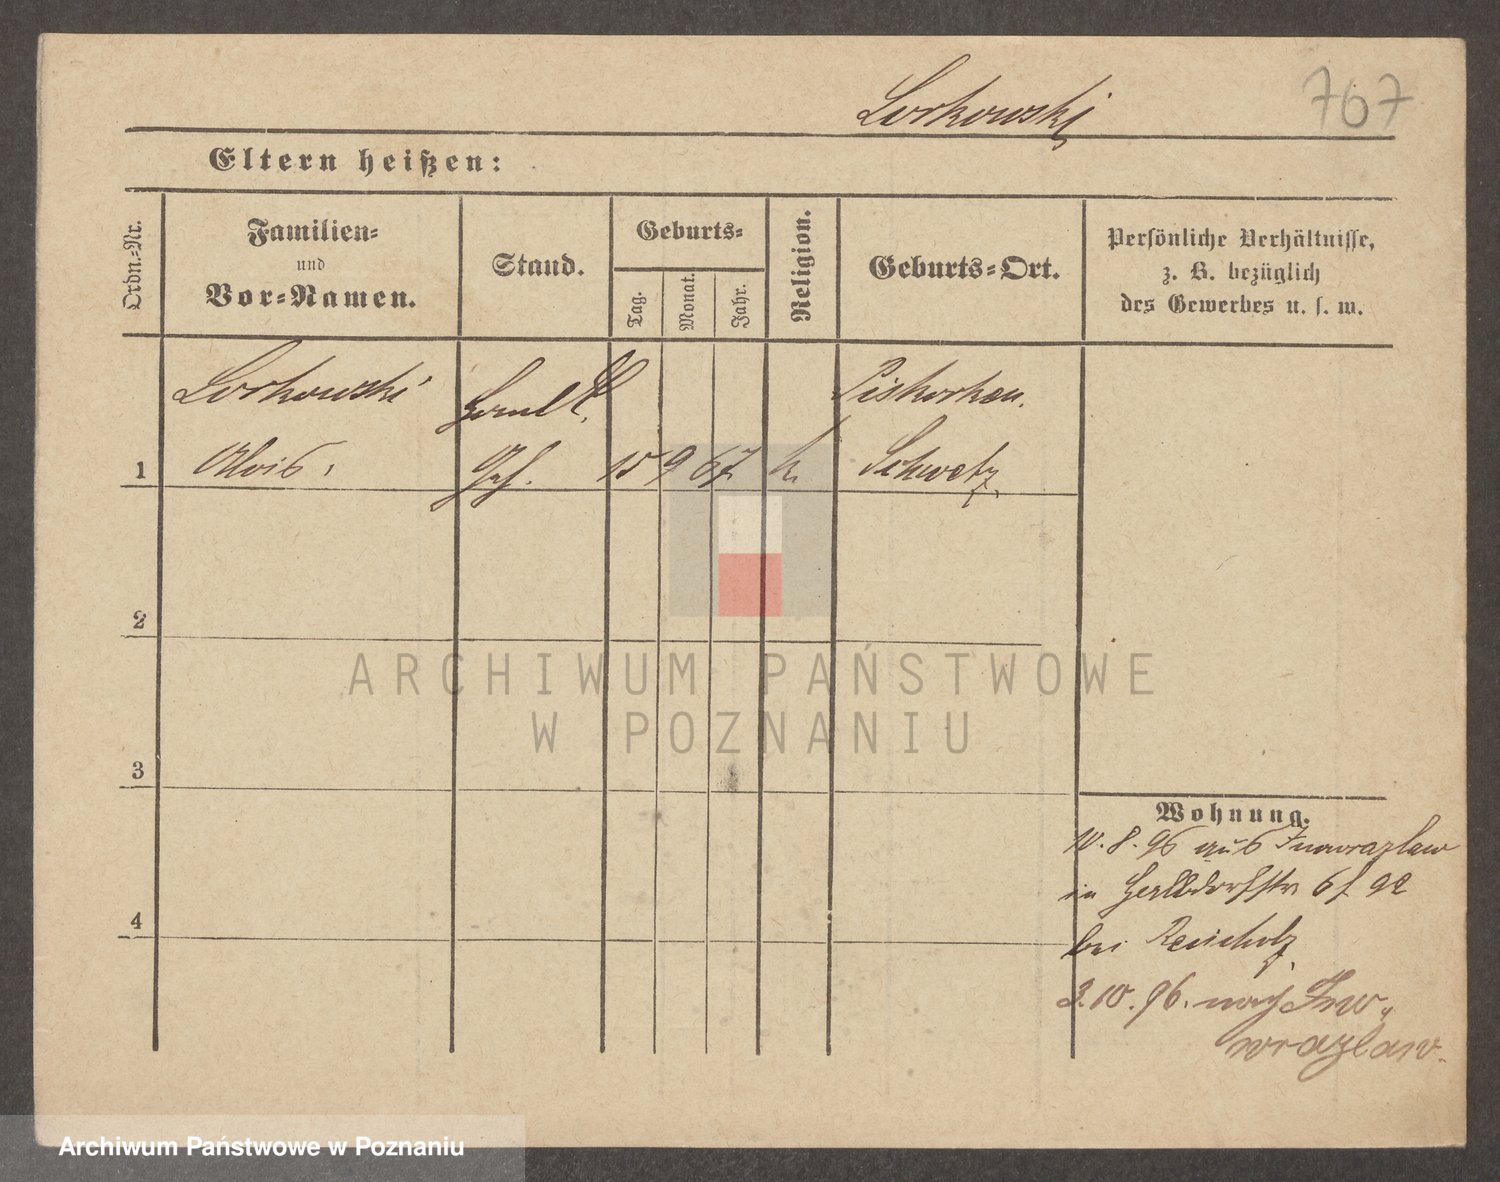 Lorkowski 767
Eltern heißen:
Ordn.-Nr.
Familien-
und
Vor-Namen.
Stand.
Geburts-
Tag.
Monat.
Jahr.
Religion.
Geburts-Ort.
Persönliche Verhältnisse,
z. B. bezüglich
des Gewerbes u. s. w.
Lorkowski Piskorken.
1 Alois, 15 9 67 k. Schwetz.
2
ARCHIWUM PAŃSTWOWE
W POZNANIU
3
Wohnung.
10.8.96 aus Inowrazlaw
in 92
4
bei
3.10.96. nach Ino-
wrazlaw.
Archiwum Państwowe w Poznaniu